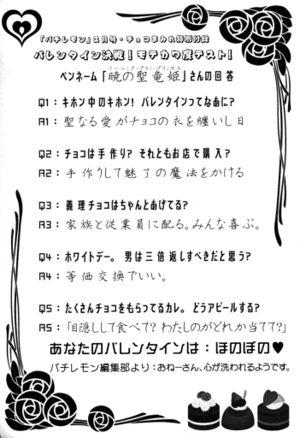 「パチレモン」2月号・チョコまみれ特別付録
バレンタイン決戦！モテカワ度テスト！
ペンネーム「暁の聖竜姫」さんの回答
バーニング・プリン・プリンセス
Q1：キホン中のキホン！バレンタインってなあに？
A1：聖なる愛がチョコの衣を纏いし日
Q2：チョコは手作り？それともお店で購入？
A2：手作りして魅了の魔法をかける
Q3：義理チョコはちゃんとあげてる？
A3：家族と従業員に配る。みんな喜ぶ。
Q4：ホワイトデー。男は三倍返しすべきだと思う？
A4：等価交換でいい。
Q5：たくさんチョコをもらってるカレ。どうアピールする？
A5：「目隠しして食べて？わたしのがどれか当てて？」
あなたのバレンタインは：ほのぼの♥
パチレモン編集部より：おねーさん、心が洗われるようです。